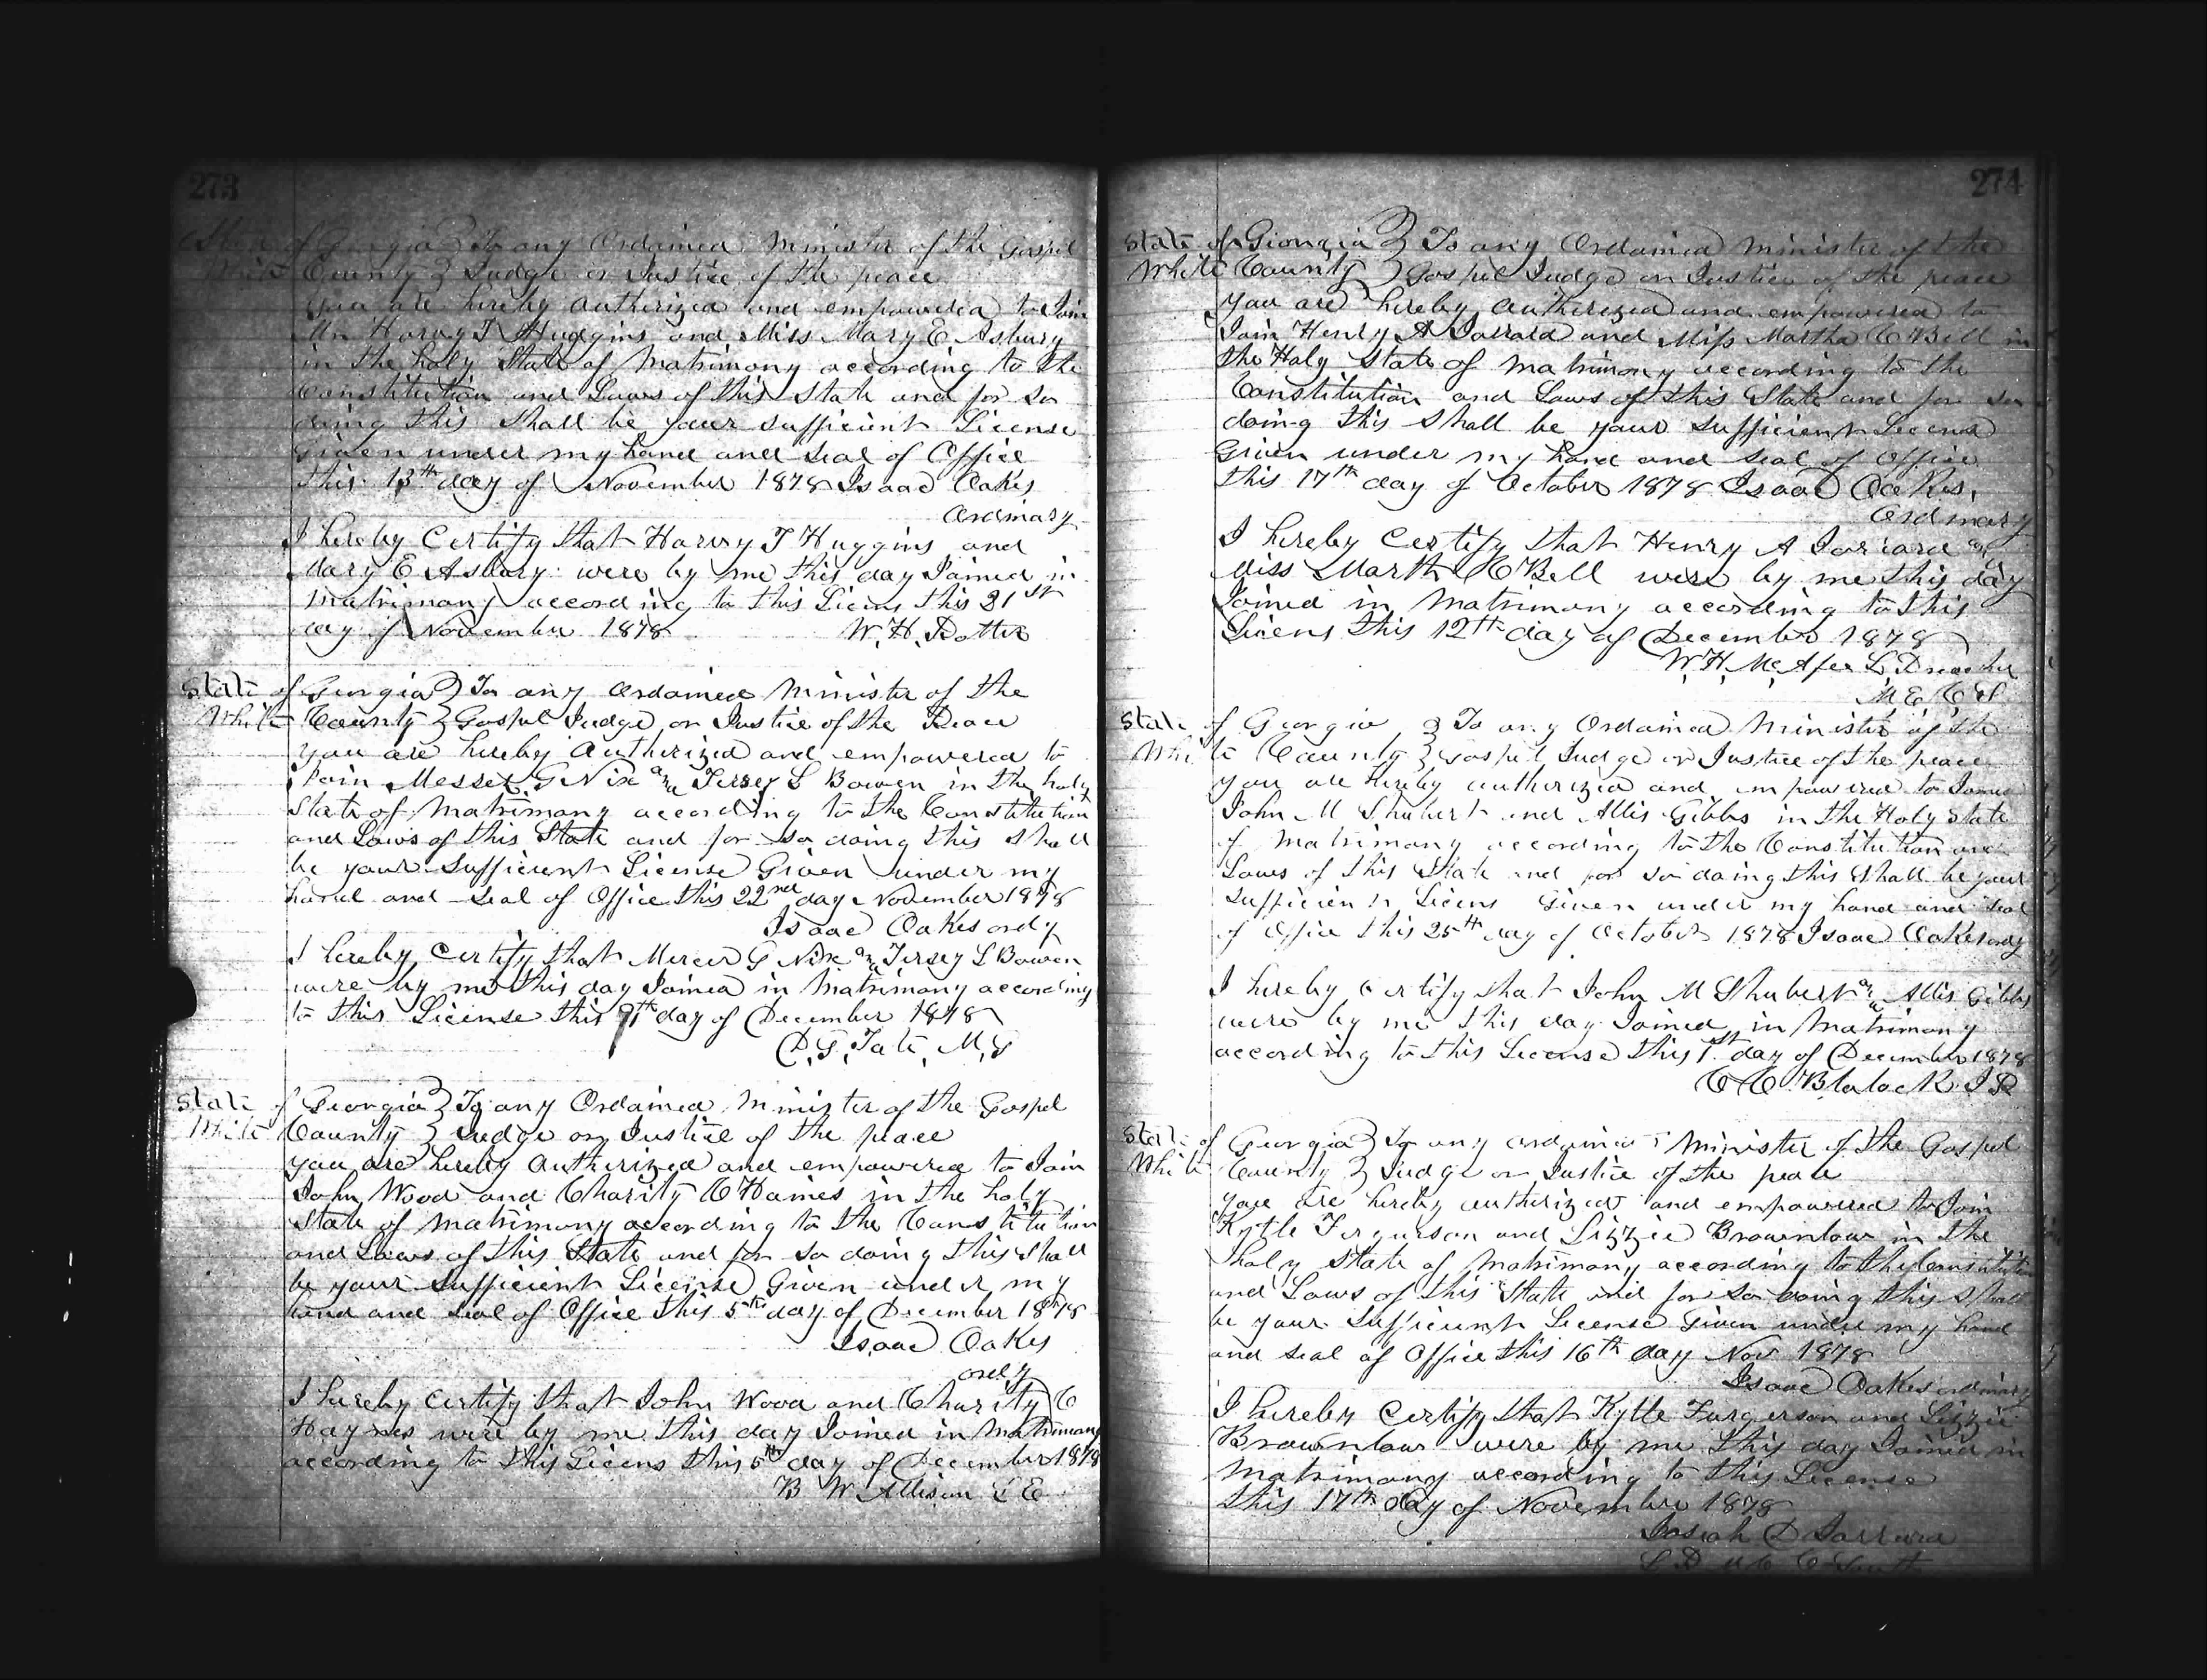 273
State of Georgia } To any Ordained Minister of the Gospel
White County } Judge or Justice of the peace
You are hereby authorized and empowered to Join
Mr Harvy T Huggins and Miss Mary E Asbury
in the holy State of Matrimony according to the
Constitution and Laws of this State and for So
doing this Shall be your sufficient License
Given under my hand and Seal of Office
this 13th day of November 1878 Isaac Oakes
Ordinary
I hereby Certify that Harvy T Huggins and
Mary E Asbury were by me this day Joined in
matrimony according to this Licens this 21st
day of November 1878 W. H.
State of Georgia } To any Ordained Minister of the
White County } Gospel Judge or Justice of the Peace
You are hereby Authorized and empowered to
Join G Nix and Tersey L Bowen in the holy
State of Matrimony according to the Constitution
and Laws of this State and for So doing this shall
be your Sufficient License Given under my
hand and Seal of Office this 22nd day November 1878
Isaac Oakes ordy
I hereby Certify that Mercer G Nix and Tersey L Bowen
were by me this day Joined in Matrimony according
to this License this day of December 1878
D. G. Tate, M, G
State of Georgia } To any Ordained Minister of the Gospel
White County } Judge or Justice of the peace
you are hereby Authorized and empowered to Join
John Wood and Charity C Haines in the holy
State of Matrimony according to the Constitution
and Laws of this State and for So doing this Shall
be your Sufficient License Given under my
hand and Seal of Office this 5th day of December 1878
Isaac Oakes
ordy
I hereby Certify that John Wood and Charity C
Haynes were by me this day Joined in Matrimony
according to this Licens this 5th day of December 1878
B W Allison
274
State of Georgia } To any Ordained Minister of the
White County } Gospel Judge or Justice of the peace
You are hereby Autherized and empowered to
Join Henry A Jarrard and Miss Martha C Bell in
the Holy State of Matrimony according to the
Constitution and Laws of this State and for So
doing this Shall be your Sufficient License
Given under my hand and Seal of Office
this 17th day of October 1878 Isaac Oakes,
Ordinary
I hereby Certify that Henry A Jarrard and
Miss Marth C Bell were by me this day
Joined in Matrimony according to this
Licens this 12th day of December 1878
W. H. McAfee L Preacher
M. E. C S
State of Georgia } To any Ordained Minister of the
White County } Gospel Judge or Justice of the peace
you are hereby authorized and empowered to
John M Shubert and Allis Gibbs in the Holy State
of Matrimony according to the Constitution and
Laws of this State and for So doing this Shall be your
Sufficient Licens Given under my hand and Seal
of Office this 25th day of October 1878 Isaac Oakes ordy
I hereby Certify that John M Shubert and Allis Gibbs
were by me this day Joined in Matrimony
according to this License this 1st day of December 1878
C C Blalock J P
State of Georgia } To any ordained Minister of the Gospel
White County } Judge or Justice of the peace
you are hereby autherized and empowered to Join
Kytle Fergurson and Lizzie Brownlow in the
holy State of Matrimony according to the Constitution
and Laws of this State and for So doing this Shall
be your Sufficient License Given under my hand
and Seal of Office this 16th day Nov 1878
Isaac Oakes ordinary
I hereby Certify that Kytle Furgerson and Lizzie
Brownlow were by me this day Joined in
Matrimony according to this License
this 17th day of November 1878
Josiah D Jarrard
South